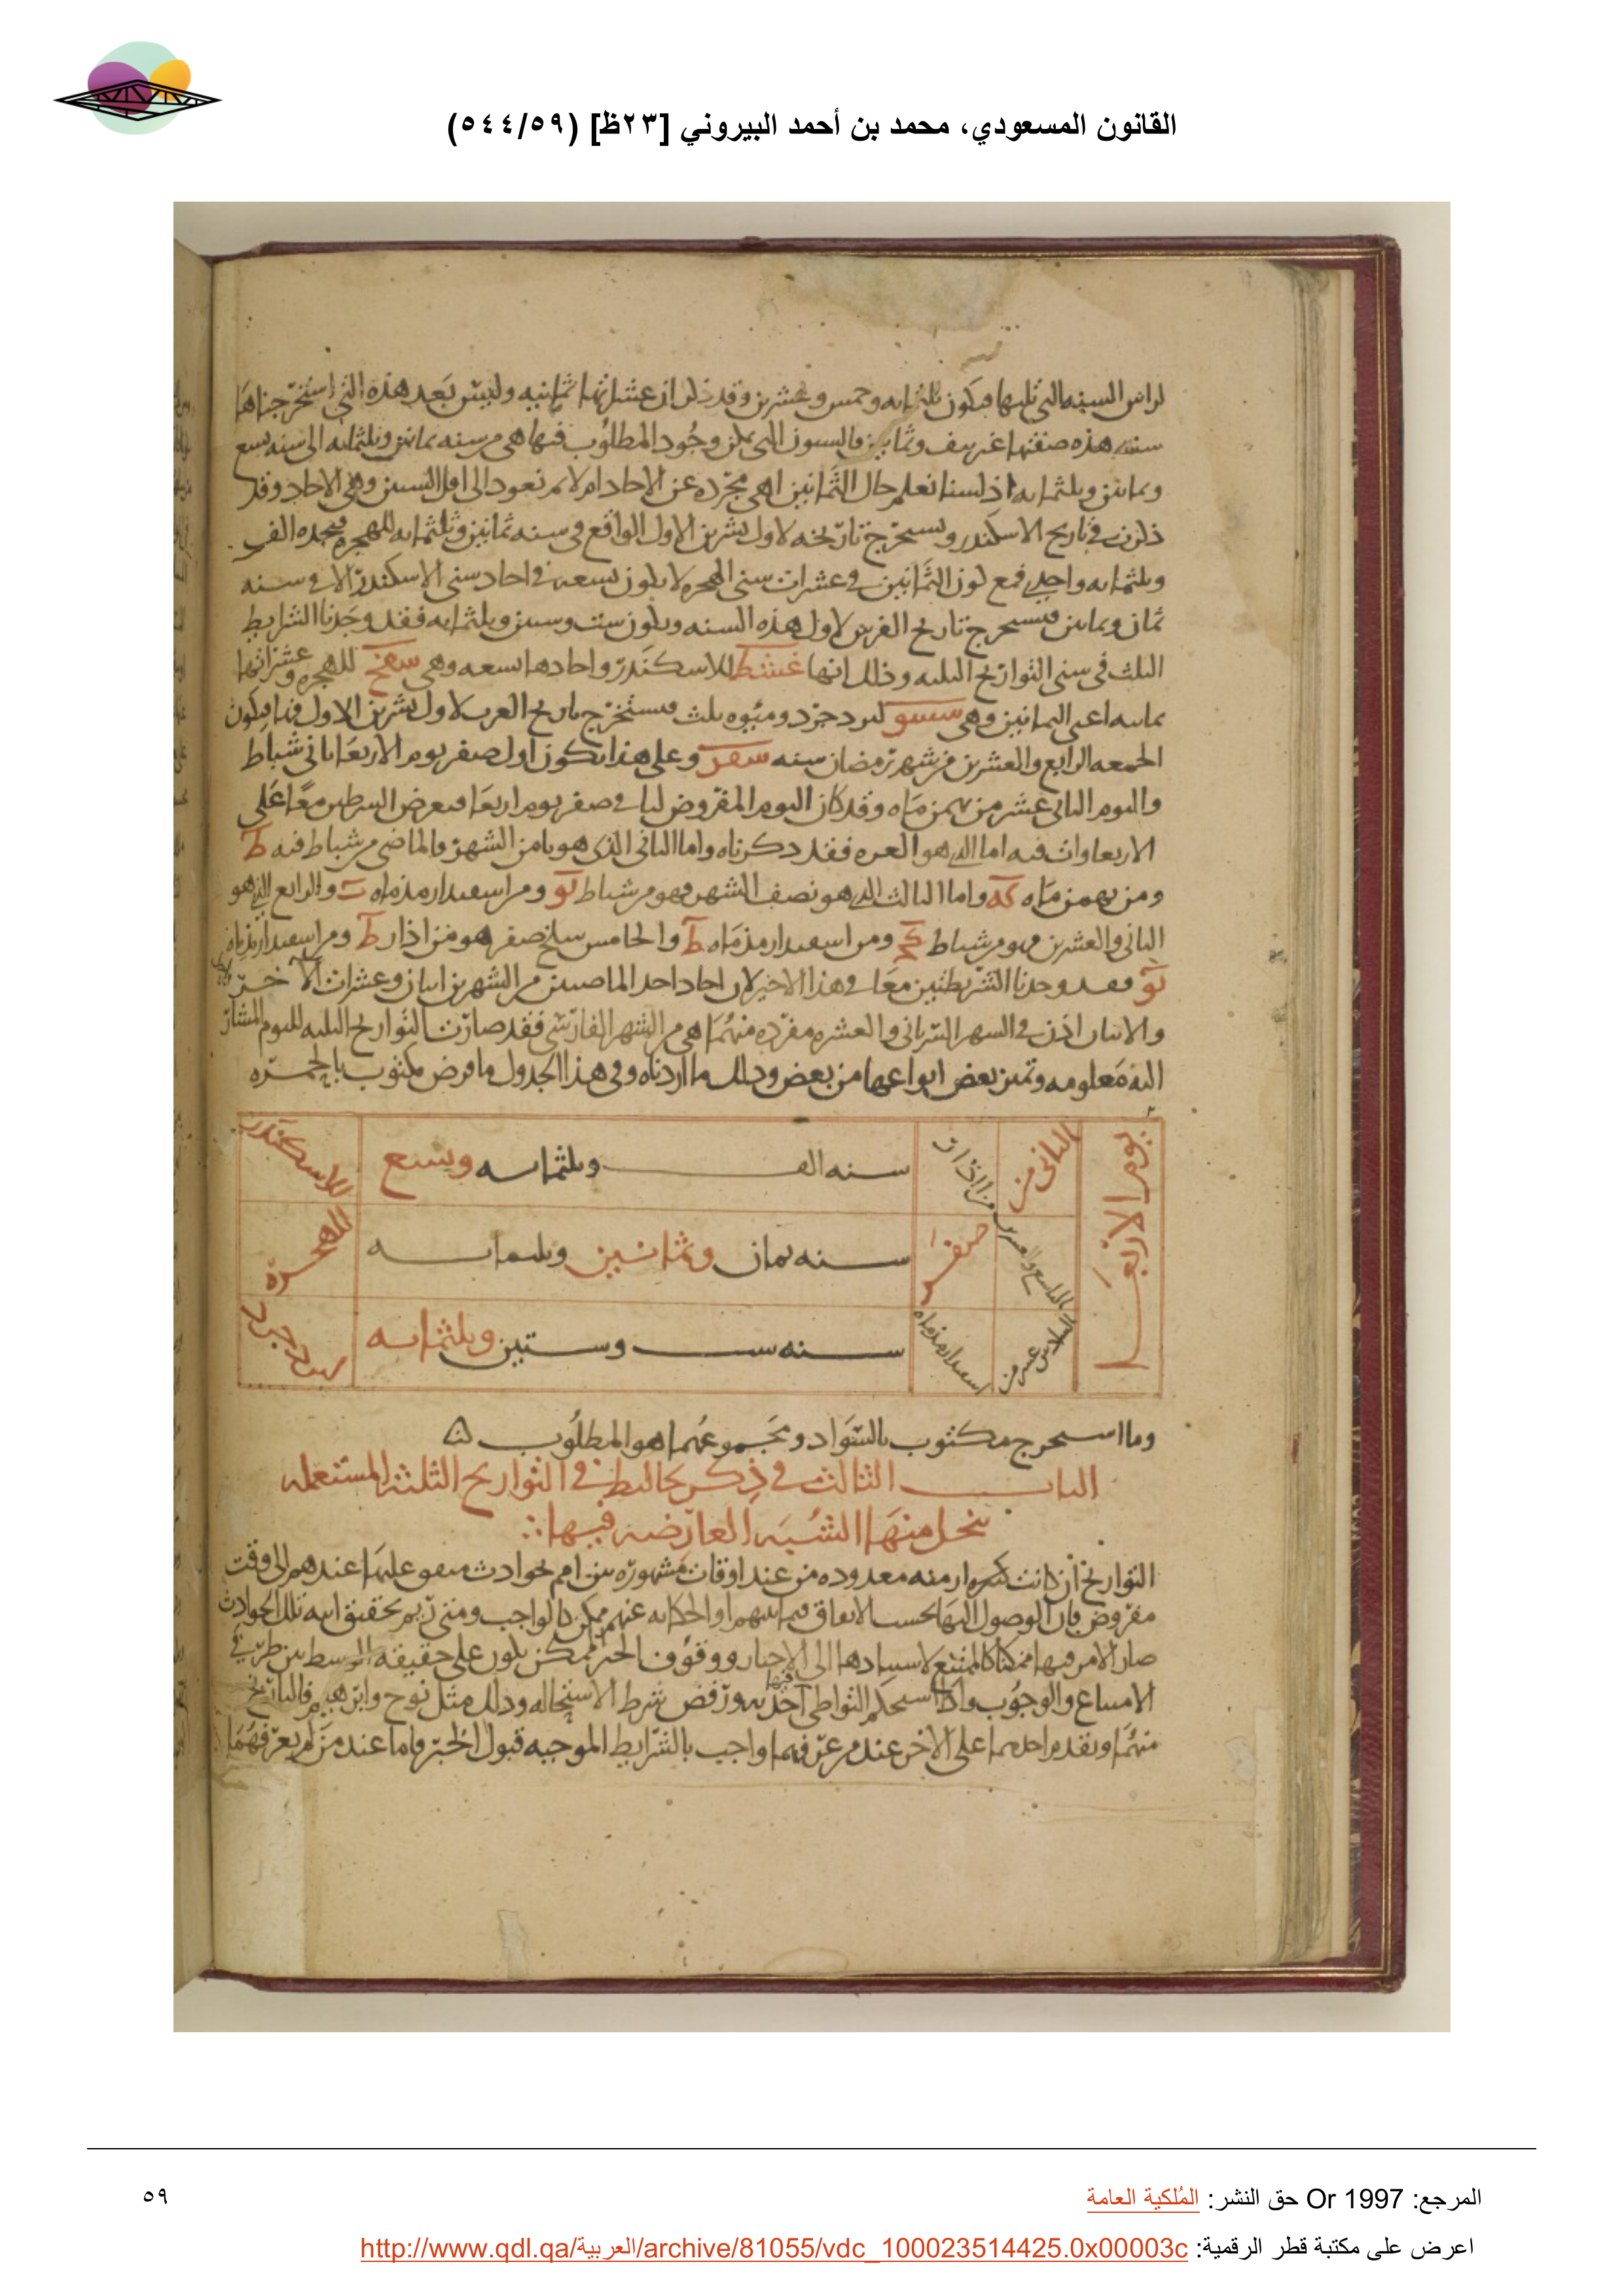 القانون المسعودي، محمد بن أحمد البيروني [٢٣ظ] (٥٤٤/٥٩)
لراس السنه التي تليها فيكون ثلثمايه وخمس وعشرين وقد ذكر ان عشراتها ثمانيه وليس بعد هذه التي استخرجناها
سنه هذه صفتها غير نيف وثمانين فالسنون التي يمكن وجود المطلوب فيها هي من سنه ثمانين وثلثمايه الى سنه تسع
وثمانين وثلثمايه اذ لسنا نعلم حال الثمانين اهي مجرده عن الاحاد ام لا ثم نعود الى اقل السنين وهي الاحاد وقد
ذكرت في تاريخ الاسكندر ونستخرج تاريخه لاول تشرين الاول الواقع في سنه ثمانين وثلثمايه للهجره فنجده الف
وثلثمايه واحدي فمع كون الثمانين في عشرات سني الهجره لا يكون تسعه في احاد سني الاسكندر الا في سنه
ثمان وثمانين فنستخرج تاريخ الفرس لاول هذه السنه ويكون ست وستين وثلثمايه فقد وجدنا الشرايط
الثلث في سني التواريخ الثلثه وذلك انها غشط للاسكندر واحادها تسعه وهي شفح للهجره وعشراتها
ثمانيه اعني الثمانين وهي شسو ليزدجرد وميوه ثلث فنستخرج تاريخ العرب لاول تشرين الاول فيكون
الجمعه الرابع والعشرين من شهر رمضان سنه شفز وعلى هذا يكون اول صفر يوم الاربعا ثاني شباط
واليوم الثاني عشر من بهمن ماه وقد كان اليوم المفروض لنا في صفر يوم اربعا فنعرض الشرطين معا على
الاربعاوات فيه اما الذي هو الغره فقد ذكرناه واما الثاني الذي هو ثامن الشهر فالماضي من شباط فيه ط
ومن بهمن ماه كه واما الثالث الذي هو نصف الشهر فهو من شباط يو ومن اسفندارمذماه ب والرابع الذي هو
الثاني والعشرين فهو من شباط كج ومن اسفندارمذماه ط والخامس سلخ صفر هو من اذار ب ومن اسفندارمذماه
يو فقد وجدنا الشريطتين معا في هذا الاخير لان احاد احد الماضيين من الشهرين اثنان وعشرات الاخر واحد
والاثنان اذن في الشهر السرياني والعشره مفرده منهما هي من الشهر الفارسي فقد صارت التواريخ الثلثه لليوم المشار
اليه معلومه وتميز بعض انواعها من بعض وذلك ما اردناه وفي هذا الجدول ما فرض مكتوب بالحمره
يوم الاربعا
الثاني من
من اذار
سنه الف وثلثمايه وتسع
للاسكندر
التاسع والعشرين
صفر
سنه ثمان وثمانين وثلثمايه
للهجره
السادس عشر من
اسفندارمذماه
سنه ست وستين وثلثمايه
ليزدجرد
وما استخرج مكتوب بالسواد ومجموعهما هو المطلوب
الباب الثالث في ذكر تخاليط في التواريخ الثلثه المستعمله
ينحل منها الشبه العارضه فيها
التواريخ ان كانت ازمنه معدوده من عند اوقات مشهوره بين امم بحوادث متفق عليها عندهم الى وقت
مفروض فان الوصول اليها بحسب الاتفاق فيما بينهم او الحكايه عنهم ممكن كالواجب ومتى ريم تحقيق انيه تلك الحوادث
صار الامر فيها ممكنا كالممتنع لاستنادها الى الاخبار ووقوف الخبر الممكن يكون على حقيقه الوسط بين طريقي
الامتناع والوجوب واذا استحكم التواطي فيها اخذ به ورفض شرط الاستحاله وذلك مثل نوح وابرهيم فالتاريخ
منهما وتقدم احدهما على الاخر عند من عرفهما واجب بالشرايط الموجبه قبول الخبر فاما عند من لم يعرفهما
المرجع: Or 1997 حق النشر: المُلكية العامة
٥٩
اعرض على مكتبة قطر الرقمية: http://www.qdl.qa/العربية/archive/81055/vdc_100023514425.0x00003c